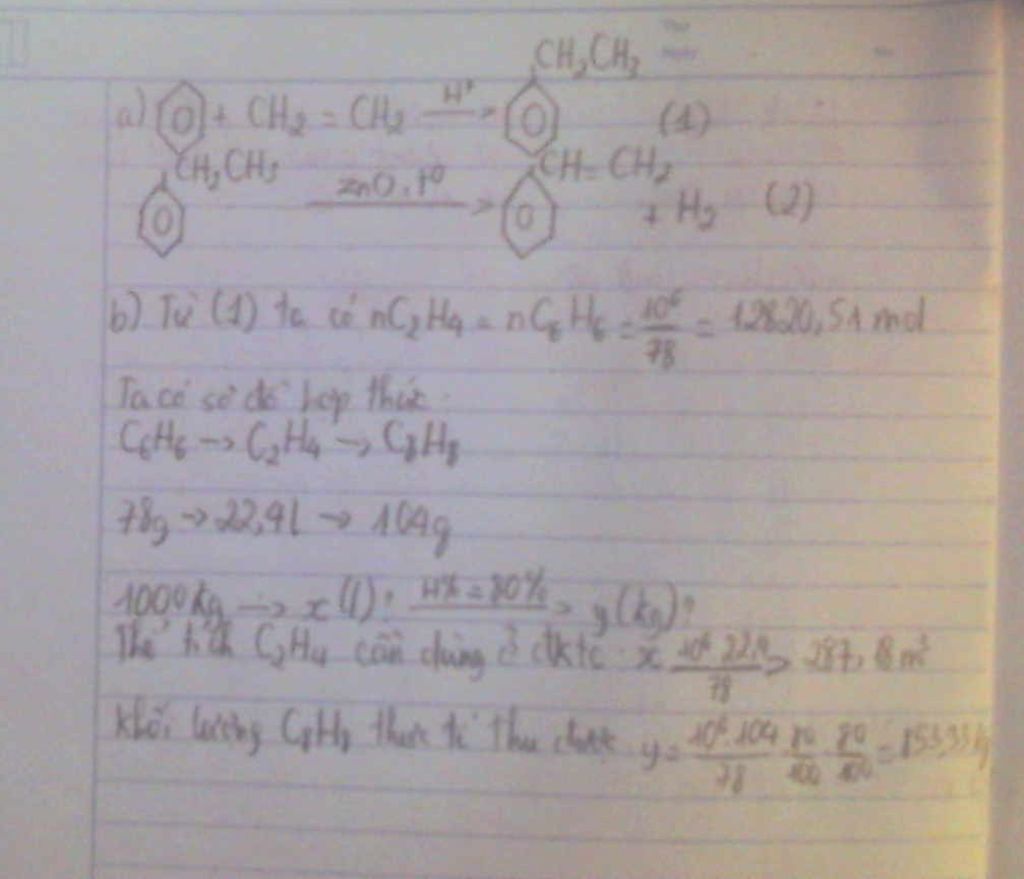 CH₂CH₃
a) + CH₂ = CH₂ H⁺ → (1)
CH₂CH₃ ZnO, t⁰ → CH=CH₂
+ H₂ (2)
b) Từ (1) ta có nC₂H₄ = nC₆H₆ = 10⁶/78 = 12820,51 mol
Ta có sơ đồ hợp thức
C₆H₆ → C₂H₄ → C₈H₈
78g → 22,4l → 104g
1000kg → x(l)? H% = 80% → y(kg)?
Thể tích C₂H₄ cần dùng ở đktc x 10⁶.22,4/78 = 287,18m³
Khối lượng C₈H₈ thực tế thu được y = 10⁶.104/78 . 80/100 . 80/100 = 853,33kg